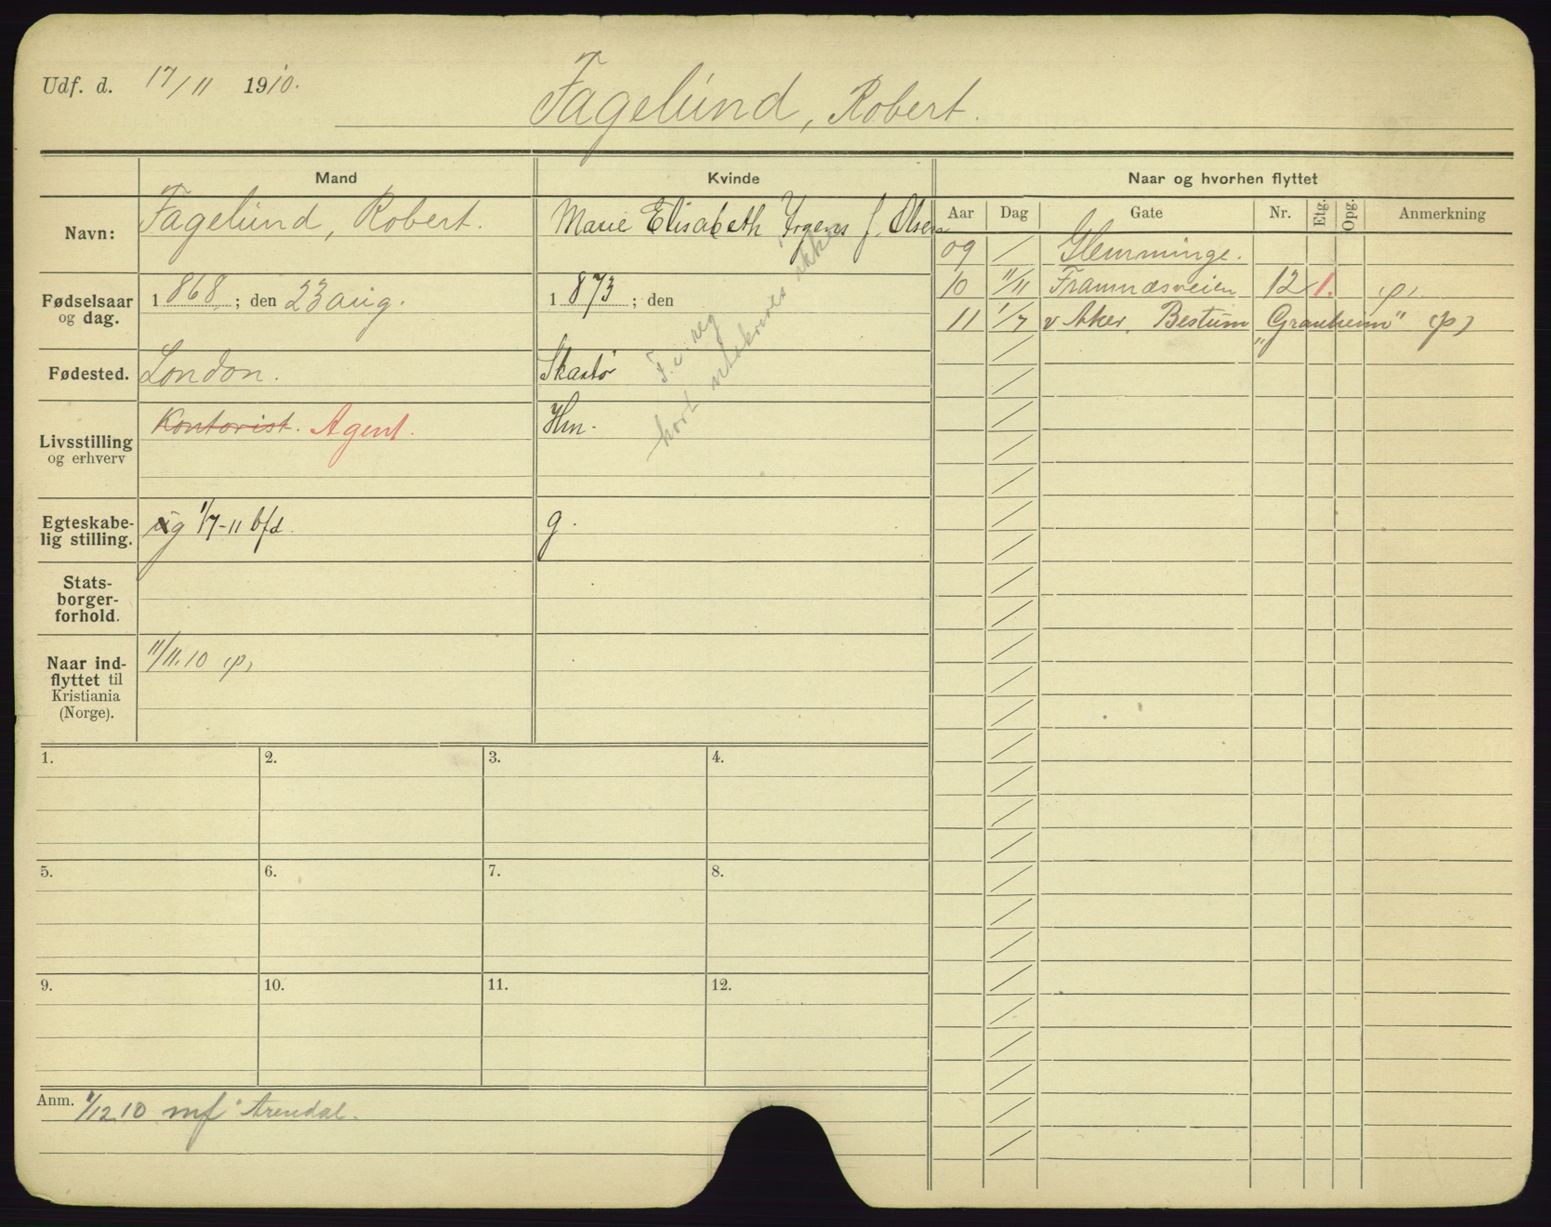 Udf. d. 17/11 1910.
Fagelund, Robert.
Mand
Kvinde
Naar og hvorhen flyttet
Navn:
Fagelund, Robert.
Marie Elisabeth Yrgens f. Olsen
Aar Dag Gate Nr. Etg. Opg. Anmerkning
09 / Glemminge.
10 11/11 Framnæsveien 12 1. (p)
11 1/7 v Aker, Bestum "Granheim" (p)
Fødselsaar og dag.
1868 ; den 23 aug.
1873 ; den
Fødested.
London.
Skaatø
F. v. reg
Livsstilling og erhverv
Kontorist. Agent.
Hm.
Egteskabelig stilling.
g 1/7-11 bfd.
g.
Statsborgerforhold.
Naar indflyttet til Kristiania (Norge).
11/11.10 (p)
1. 2. 3. 4.
5. 6. 7. 8.
9. 10. 11. 12.
Anm. 1/12 10 mf Arendal.